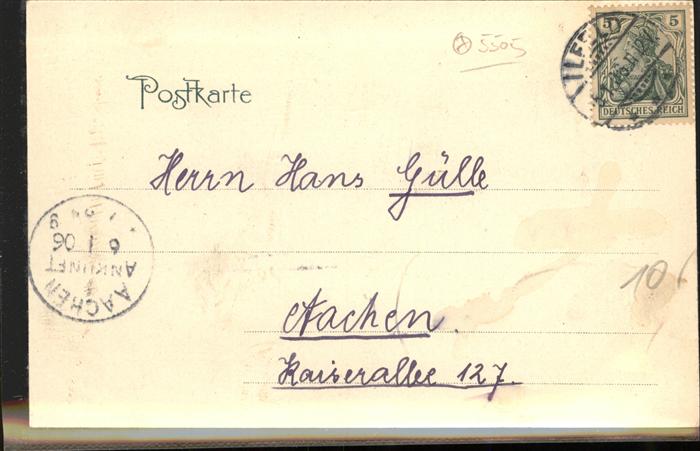 5505
5 5
DEUTSCHES REICH
ILFELD
Postkarte
Herrn Hans Gülle
AACHEN
ANKUNFT
6 1 06
Aachen.
Kaiserallee 127.
10